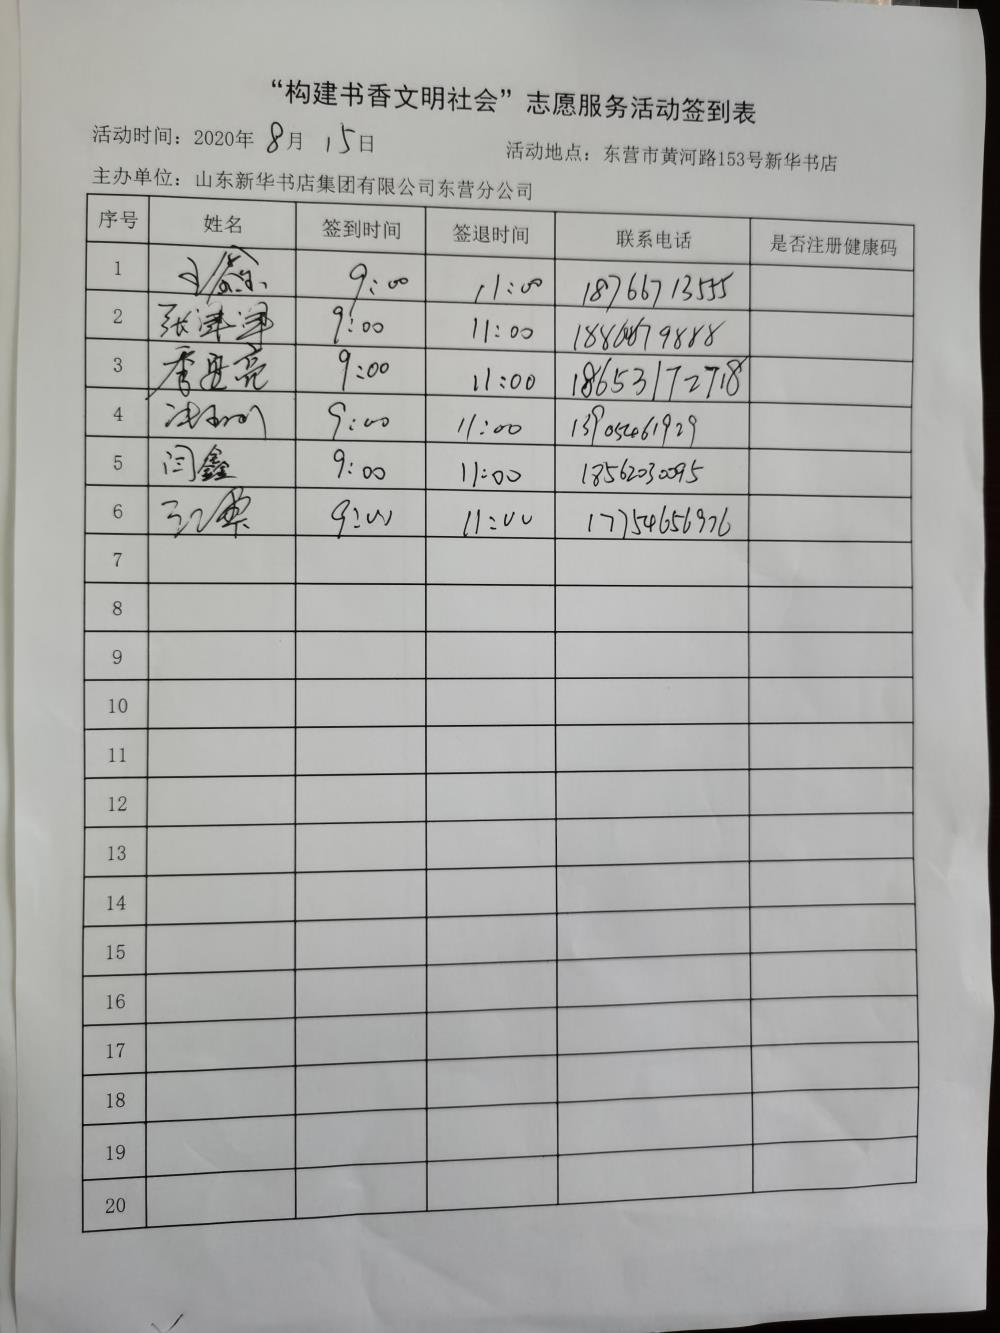 “构建书香文明社会”志愿服务活动签到表
活动时间：2020年 8月 15日 活动地点：东营市黄河路153号新华书店
主办单位：山东新华书店集团有限公司东营分公司
序号 姓名 签到时间 签退时间 联系电话 是否注册健康码
1 9:00 11:00 18766713555
2 张津津 9:00 11:00
3 季亚亮 9:00 11:00 18653172718
4 9:00 11:00 13905461929
5 闫鑫 9:00 11:00 18562030095
6 9:00 11:00 17754656976
7
8
9
10
11
12
13
14
15
16
17
18
19
20